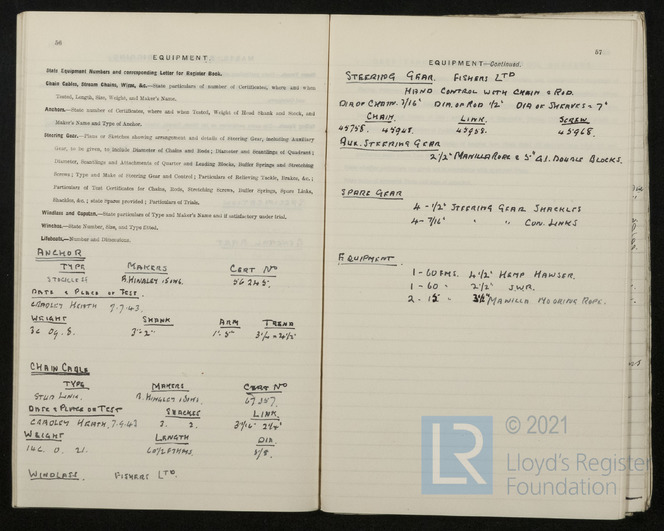 56
EQUIPMENT
State Equipment Numbers and corresponding Letter for Register Book.
Chain Cables, Stream Chains, Wires, &c.—State particulars of number of Certificates, where and when
Tested, Length, Size, Weight, and Maker's Name.
Anchors.—State number of Certificates, where and when Tested, Weight of Head Shank and Stock, and
Maker's Name and Type of Anchor.
Steering Gear.—Plans or Sketches showing arrangement and details of Steering Gear, including Auxiliary
Gear, to be given, to include Diameter of Chains and Rods; Diameter and Scantlings of Quadrant;
Diameter, Scantlings and Attachments of Quarter and Leading Blocks, Buffer Springs and Stretching
Screws; Type and Make of Steering Gear and Control; Particulars of Relieving Tackle, Brakes, &c.;
Particulars of Test Certificates for Chains, Rods, Stretching Screws, Buffer Springs, Spare Links,
Shackles, &c.; state Spares provided; Particulars of Trials.
Windlass and Capstan.—State particulars of Type and Maker's Name and if satisfactory under trial.
Winches.—State Number, Size, and Type fitted.
Lifeboats.—Number and Dimensions.
ANCHOR
TYPE MAKERS CERT No
N. HINGLEY & SONS. 56245.
DATE & PLACE OF TEST.
CRADLEY HEATH 7.7.43.
WEIGHT SHANK ARM TREND
3'-2" 1'-5"
CHAIN CABLE
TYPE MAKERS CERT No
STUD LINK. N. HINGLEY & SONS.
DATE & PLACE OF TEST SHACKLES LINK
CRADLEY HEATH, 7.9.43 2. 2.
WEIGHT LENGTH DIA
14C. 0. 21. 5/8.
WINDLASS FISHERS LTD.
57
EQUIPMENT—Continued.
STEERING GEAR. FISHERS LTD
HAND CONTROL WITH CHAIN & ROD.
DIA OF CHAIN. 7/16" DIA. OF ROD 1/2" DIA OF SHEAVES = 7"
CHAIN. LINK. SCREW
45958. 45968.
AUX. STEERING GEAR
2 1/2" MANILLA ROPE & 5" G.I. DOUBLE BLOCKS.
SPARE GEAR
4 - 1/2" STEERING GEAR SHACKLES
4 - 7/16" " " CON. LINKS
EQUIPMENT
1 - 60 FMS. 4 1/2" HEMP HAWSER.
1 - 60 " 2 1/2" S.W.R.
2 - 15 " MANILLA MOORING ROPE.
© 2021
LR
Lloyd's Register
Foundation